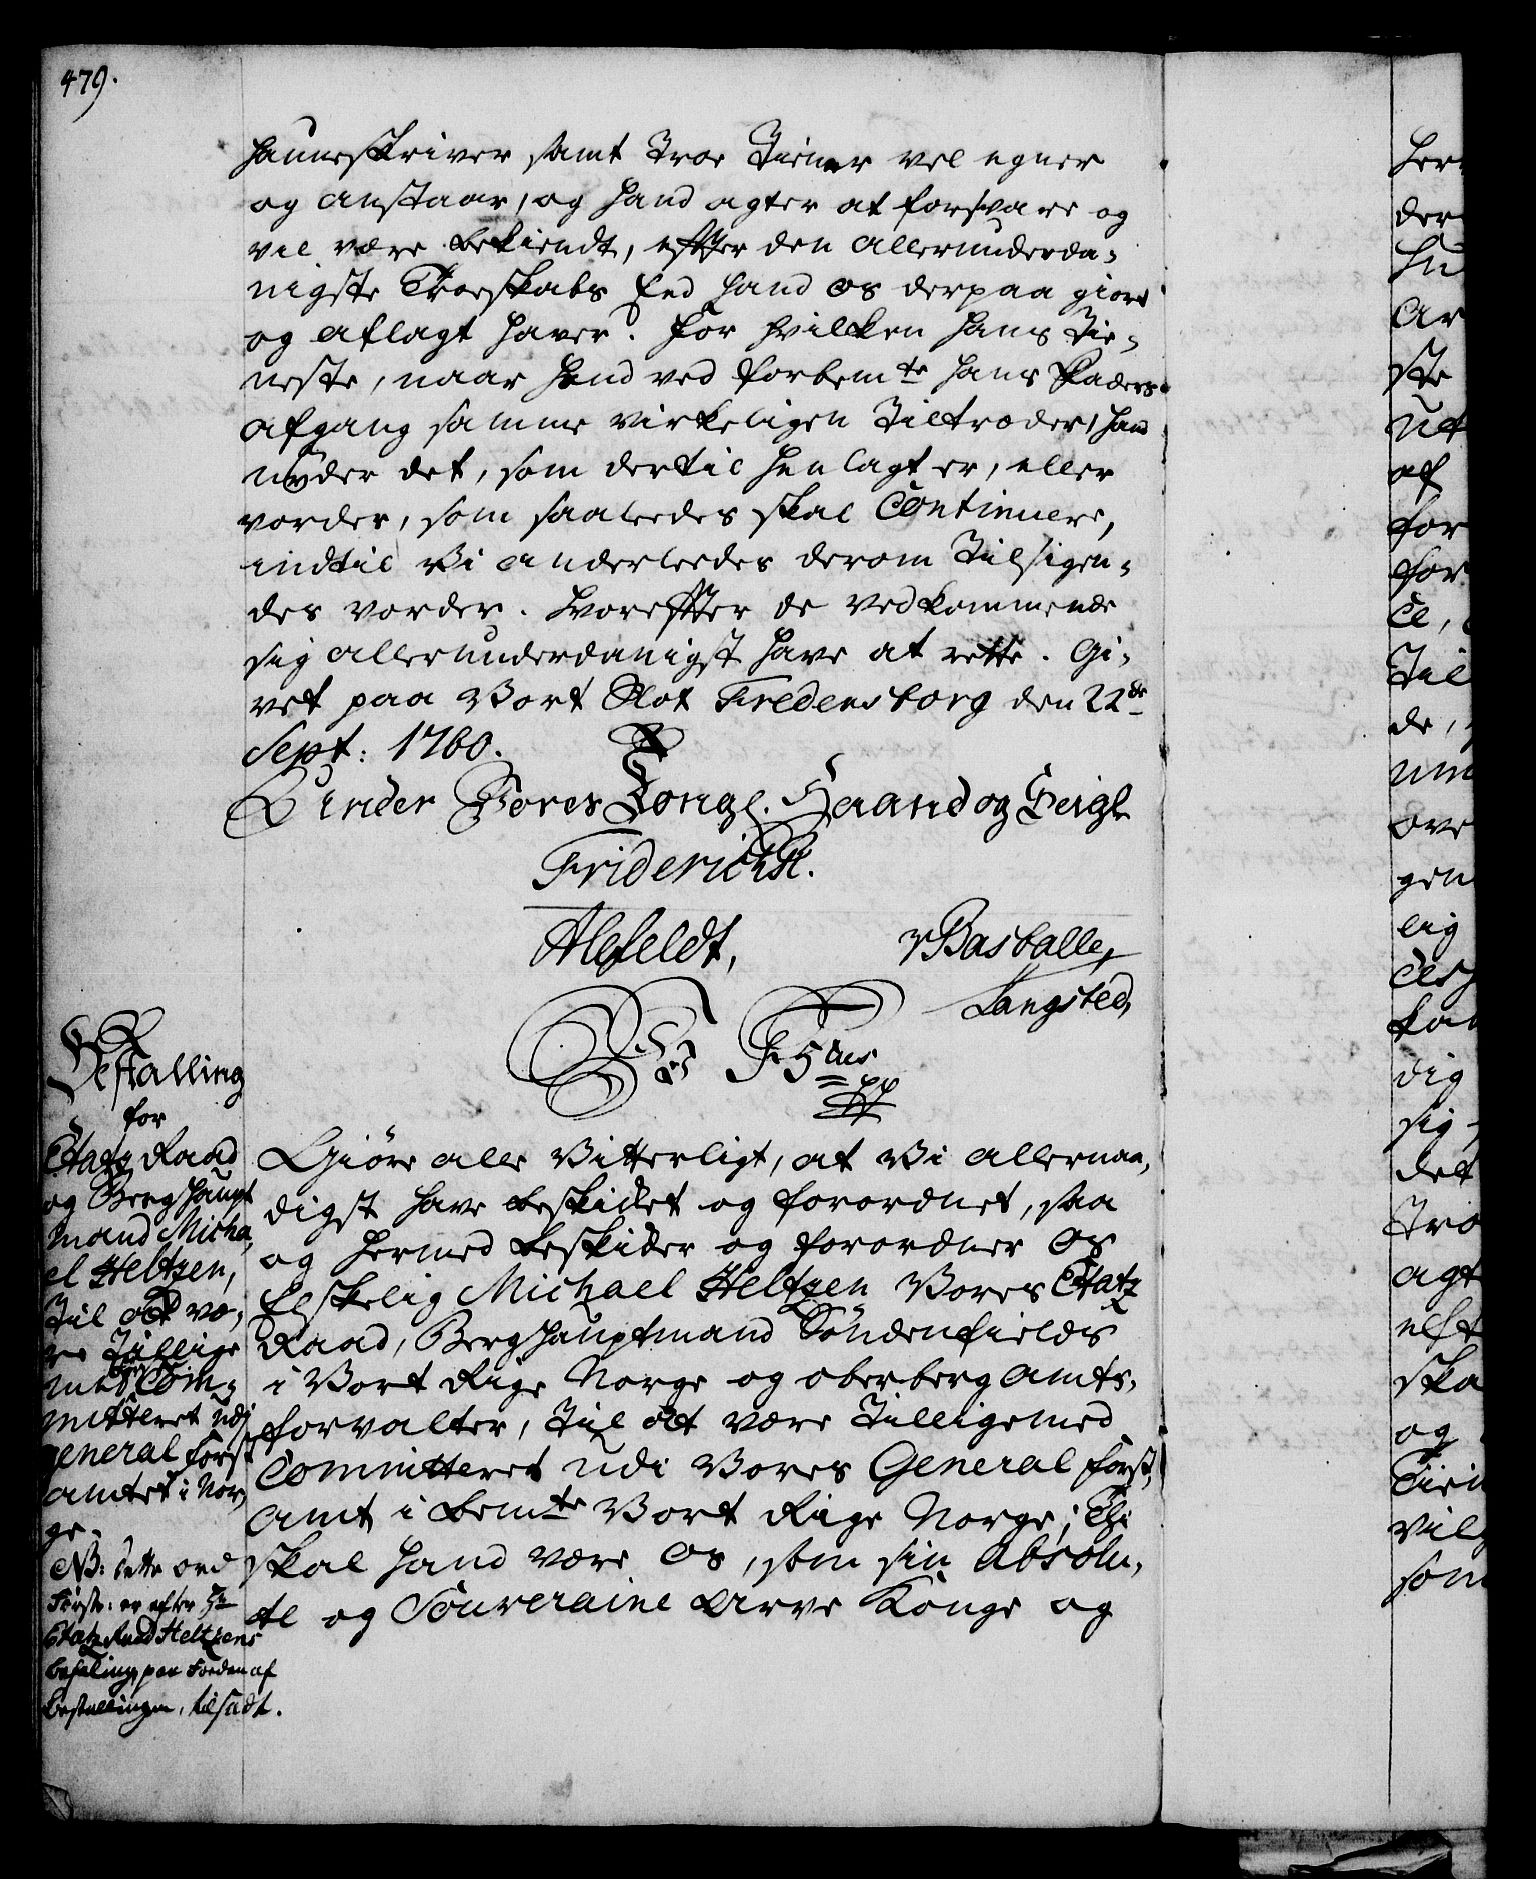 479.
Haunefkriver samt troe Tiener vel egner
og anstaar, og Hand agter at forsvare og
vil være bekiendt, effter den allerunderda-
nigste Troeskabs Eed Hand os derpaa giort
og aflagt haver. For hvilken hans Tie-
neste, naar Hand ved forbemte hans Faders
afgang samme virkeligen Tiltræder, Hand
nyder det, som dertil henlagt er, eller
vorder, som saaleedes skal Continuere,
indtil Vi anderleedes derom Tilsigen-
des vorder. Hvoreffter de vedkommende
sig allerunderdanigst have at rette. Gi-
vet paa Vort Slot Fredensborg den 22de
Sept: 1760.
Under Vores Kongl. Haand og Seigl
Friderich R.
Alefeldt,
v Basballe,
Langsted,
Vi Fr: 5tus
pp
Bestalling
for
Etatz Raad
og Berghaupt
mand Micha-
el Heltzen,
Til at væ-
re Tillige
med Com-
mitteret udi
General Forst
amtet i Nor-
ge.
NB: dette ord
Første: er efter Hr
Etatz Raad Heltzens
befaling, paa Foeden af
bestallingen, tilsadt.
Giøre alle Vitterligt, at Vi allernaa-
digst have beskiket og forordnet, saa
og hermed beskiker og forordner Os
Elskelig Michael Heltzen Vores Etatz
Raad, Berghauptmand Søndenfields
i Vort Rige Norge og oberberg amts-
forvalter, Til at være Tilligemed
Committeret udi Vores General Forst-
amt i bemte Vort Rige Norge; Thi
skal Hand være Os, som sin Absolu-
te og Souveraine Arve Konge og